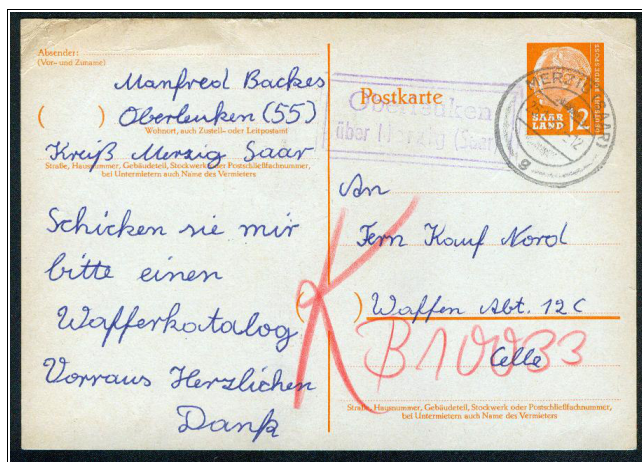 Absender:
(Vor- und Zuname)
Manfred Backes
( ) Oberleuken (55)
Wohnort, auch Zustell- oder Leitpostamt
Kreiß Merzig Saar
Straße, Hausnummer, Gebäudeteil, Stockwerk oder Postschließfachnummer,
bei Untermietern auch Name des Vermieters
Schicken sie mir
bitte einen
Waffenkatalog
Vorraus Herzlichen
Dank
Postkarte
Oberleuken
über Merzig (Saar)
SAAR
LAND 12
MERZIG (SAAR)
g
An
Fern Kauf Nord
( ) Waffen Abt. 12C
Celle
K
B10033
Straße, Hausnummer, Gebäudeteil, Stockwerk oder Postschließfachnummer,
bei Untermietern auch Name des Vermieters